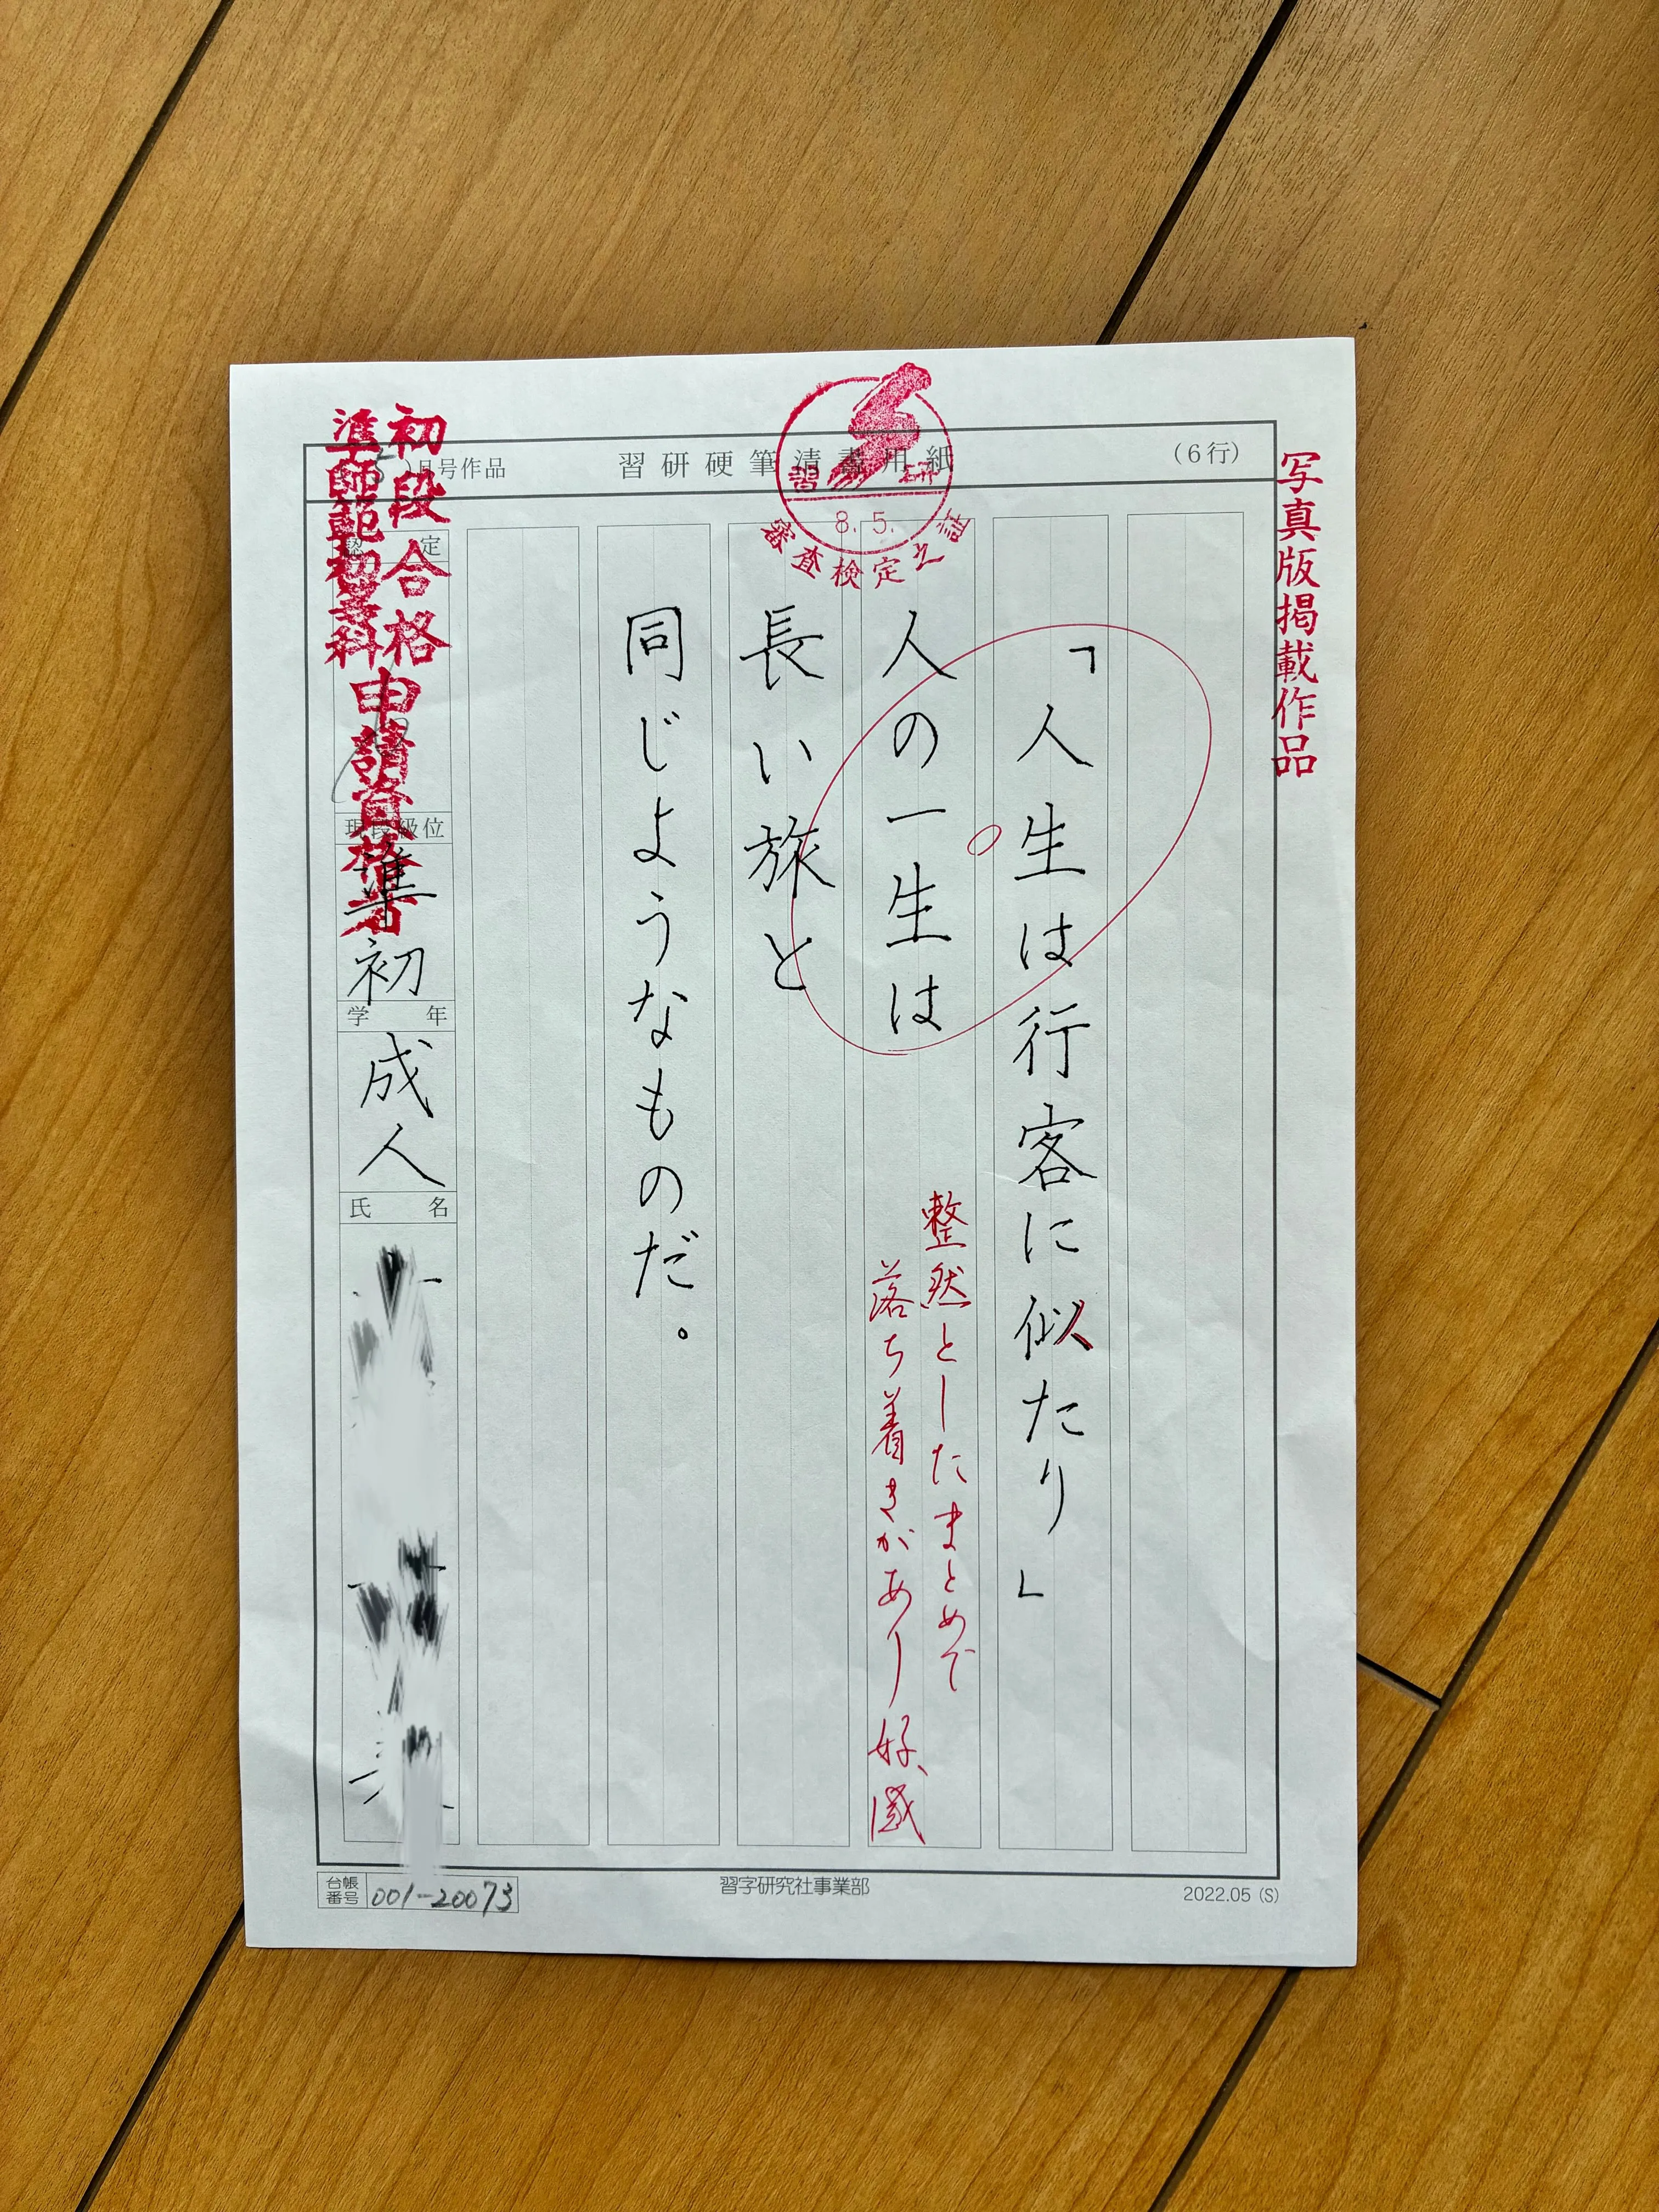 写真版掲載作品
(6行)
習研硬筆清書用紙
習研
8.5.
審査検定之証
月号作品
「人生は行客に似たり」
人の一生は
長い旅と
同じようなものだ。
整然としたまとめで
落ち着きがあり好感
初段合格
準師範初等科
申請資格者
認定
現段級位
準初
学年
成人
氏名
台帳番号 001-20073
習字研究社事業部
2022.05 (S)